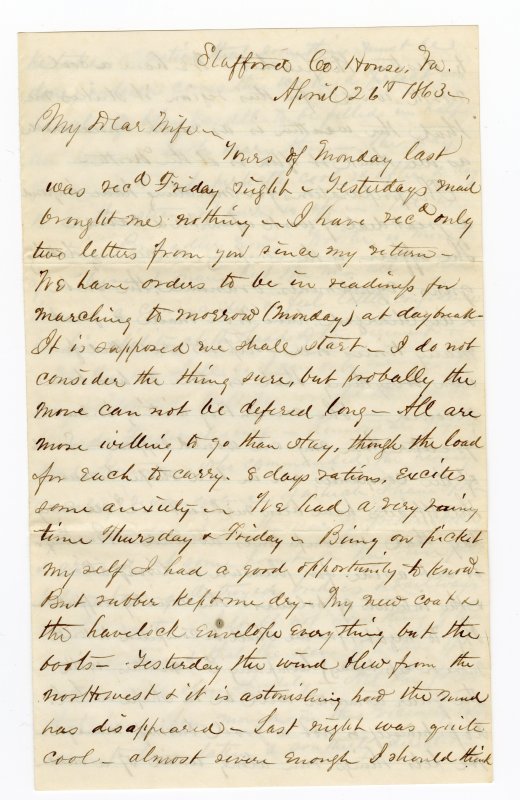 Stafford Co House, Va.
April 26th 1863 –
My Dear Wife –
Yours of Monday last
was recd Friday night – Yesterdays mail
brought me nothing – I have recd only
two letters from you since my return –
We have orders to be in readiness for
marching to morrow (Monday) at daybreak –
It is supposed we shall start – I do not
consider the thing sure, but probally the
move can not be defered long – All are
more willing to go than stay, though the load
for each to carry. 8 days rations, excites
some anxiety – We had a very rainy
time Thursday & Friday – Being on picket
my self I had a good opportunity to know –
But rubber kept me dry – My new coat &
the havelock envelope everything but the
boots – Yesterday the wind blew from the
northwest & it is astonishing how the mud
has disappeared – Last night was quite
cool – almost severe enough I should think